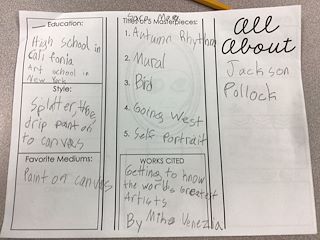 Education:
High school in
California
Art school in
New York
Style:
Splatter, the
drip paint on
to canvas
Favorite Mediums:
Paint on canvas
Titles of 5 Masterpieces:
1. Autumn Rhythm
2. Mural
3. Bird
4. Going West
5. Self Portrait
WORKS CITED
Getting to know
the world's Greatest
Artists
By Mike Venezia
All
About
Jackson
Pollock